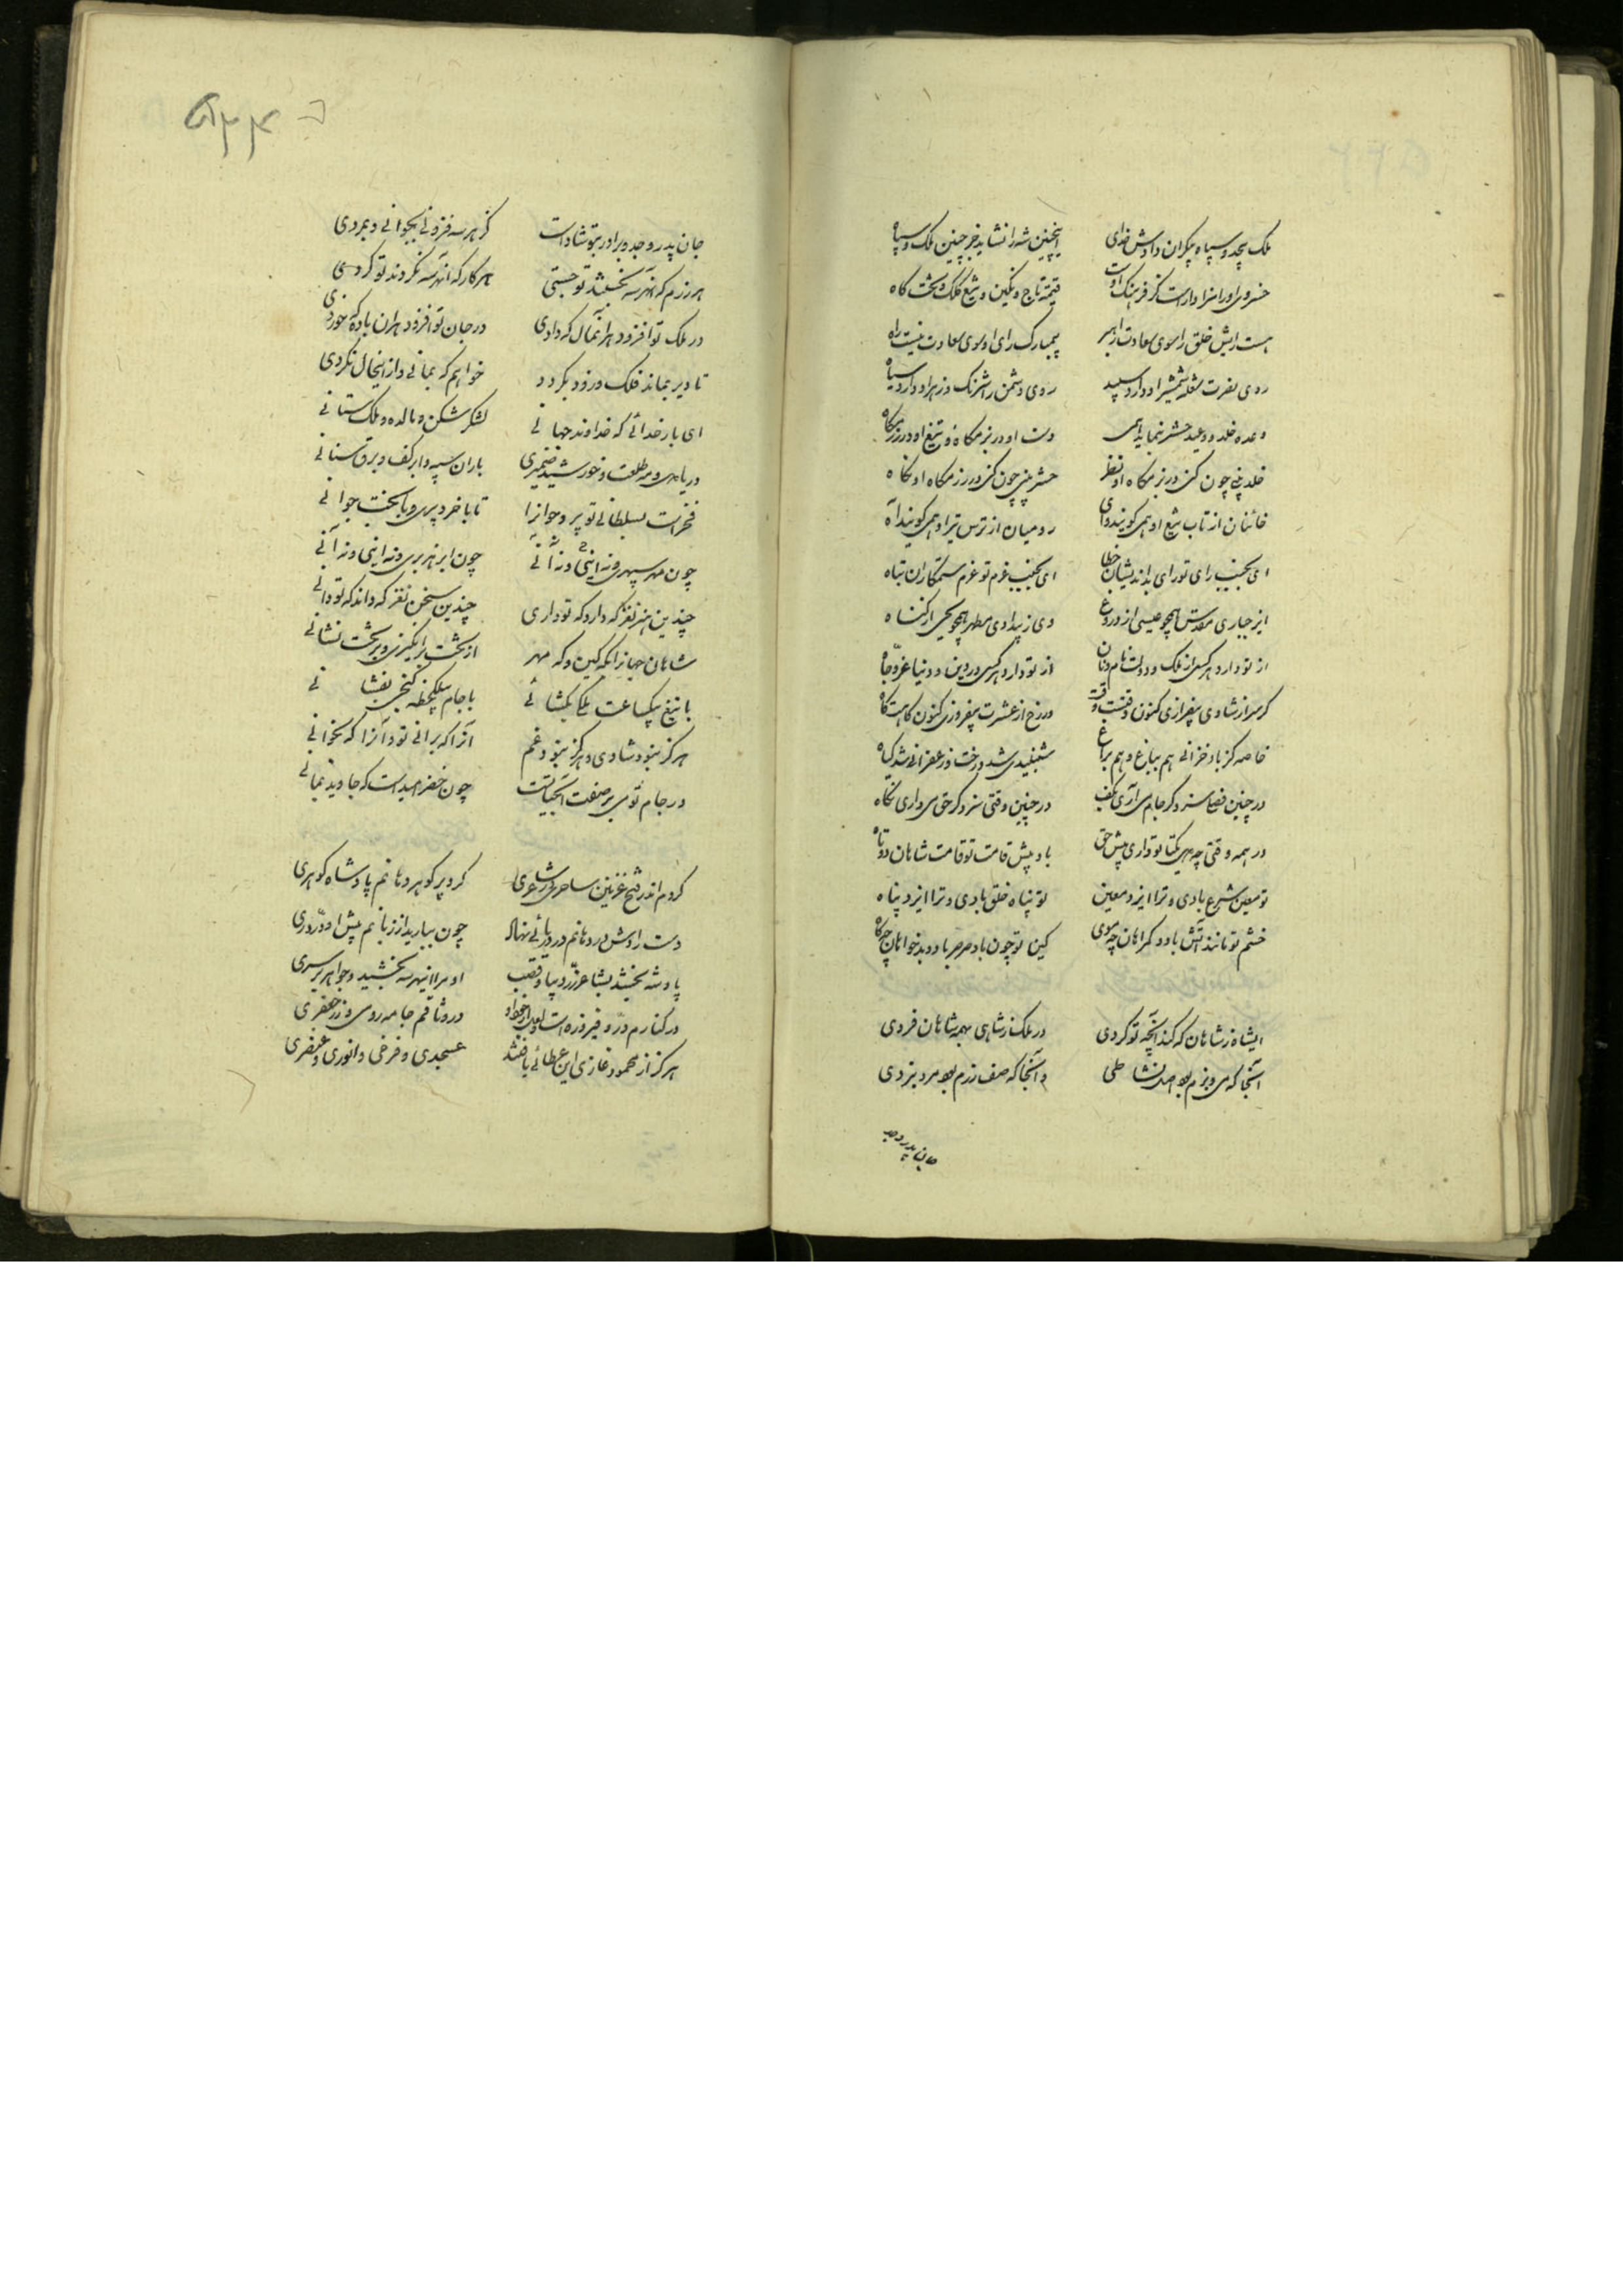 ملک بیحد و سپاه بیکران دادش خدای
اینچنین شه را نشاید جز چنین ملک و سپاه
خسروی او را سزاوارست کز فرهنک اوست
قیمت تاج و نکین و تیغ و کلک و تخت کاه
هست رایش خلق را سوی سعادت راهبر
بیمبارک رای او سوی سعادت نیست راه
روی نصرت شعله شمشیر او دارد سپید
روی دشمن را شرنک و زهر او دارد سیاه
وعده خلد و وعید حشر بنماید همی
دست او در بزمکاه و تیغ او در رزمکاه
خلد بینی چون کنی در بزمکاه او نظر
حشر بینی چون کنی در رزمکاه او نکاه
خائنان از تاب تیغ او همی کویند وای
رومیان از ترس تیر او همی کویند آه
ای بجنب رای تو رای بداندیشان خطا
ای بجنب عزم تو عزم ستمکاران تباه
وی ز بیدادی مطهر همچو یحیی از کناه
از تو دارد هر کسی از ملک و دولت نام و نان
از تو دارد هر کسی در دین و دنیا عز و جاه
کر سر از شادی بیفرازی کنون وقتست وقت
ور رخ از عشرت بیفروزی کنون کاهست کاه
خاصه کز باد خزانی هم بباغ و هم براغ
شنبلیدی شد درخت و زعفرانی شد کیاه
در چنین فصلی سزد کر جام می آری بکف
در چنین وقتی سزد کر حق می داری نکاه
در همه وقتی چو یکتا تو داری پیش حق
باد پیش قامت تو قامت شاهان دوتاه
تو معین شرع بادی و ترا ایزد معین
تو پناه خلق بادی و ترا ایزد پناه
خشم تو مانند آتش باد و کمراهان چو موی
کین تو چون باد صرصر باد و بدخواهان چو کاه
ایشاه ز شاهان که کند آنچه تو کردی
در ملک ز شاهی بهمه شاهان فردی
آنجا که می و بزم بود اصل نشاطی
و آنجا که صف رزم بود مرد نبردی
جان پدر و جد
۵۳۴
جان پدر و جد و برادر بتو شادست
کز هر سه فزونی بجوانی و بمردی
هر رزم که آنهر سه نجستند تو جستی
هر کار که آنهر سه نکردند تو کردی
در ملک تو افزود هر آنمال که دادی
در جان تو افزود هر آن باده که خوردی
تا دیر بماند فلک و زود بکردد
خواهم که بمانی و از اینحال نکردی
ای بار خدائی که خداوند جهانی
لشکر شکن و مال ده و ملک ستانی
دریا دل و مه طلعت و خورشید ضمیری
باران سپه و ابر کف و برق سنانی
فخرست بسلطانی تو پیر و جوان را
تا با خرد پیری و با بخت جوانی
چون مهر سپهری و نه اینی و نه آنی
چون ابر هنر بری و نه اینی و نه آنی
چندین هنر نغز که دارد که تو داری
چندین سخن نغز که داند که تو دانی
شاهان جهان را بکه کین و که مهر
از تخت برانکیزی و بر تخت نشانی
با تیغ بیکساعت ملکی بکشائی
با جام بیکلحظه کنجی بفشانی
هرکز نبود شادی و هرکز نبود غم
آنرا که برانی تو و آنرا که بخوانی
در جام تو می بر صفت آبحیاتست
چون خضر امیدست که جاوید بمانی
کردم اندر فتح غزنین ساحری در شاعری
کرد پر کوهر دهانم پادشاه کوهری
چون ببارید از زبانم پیش او در دری
پادشه بخشد بشاعر زر و دیبا و قصب
او مرا اینهر سه بخشید و جواهر بر سری
در وثاقم جامه رومی و زر جعفری
هرکز از محمود غازی این عطائی یافتند
عسجدی و فرخی و انوری و عنصری